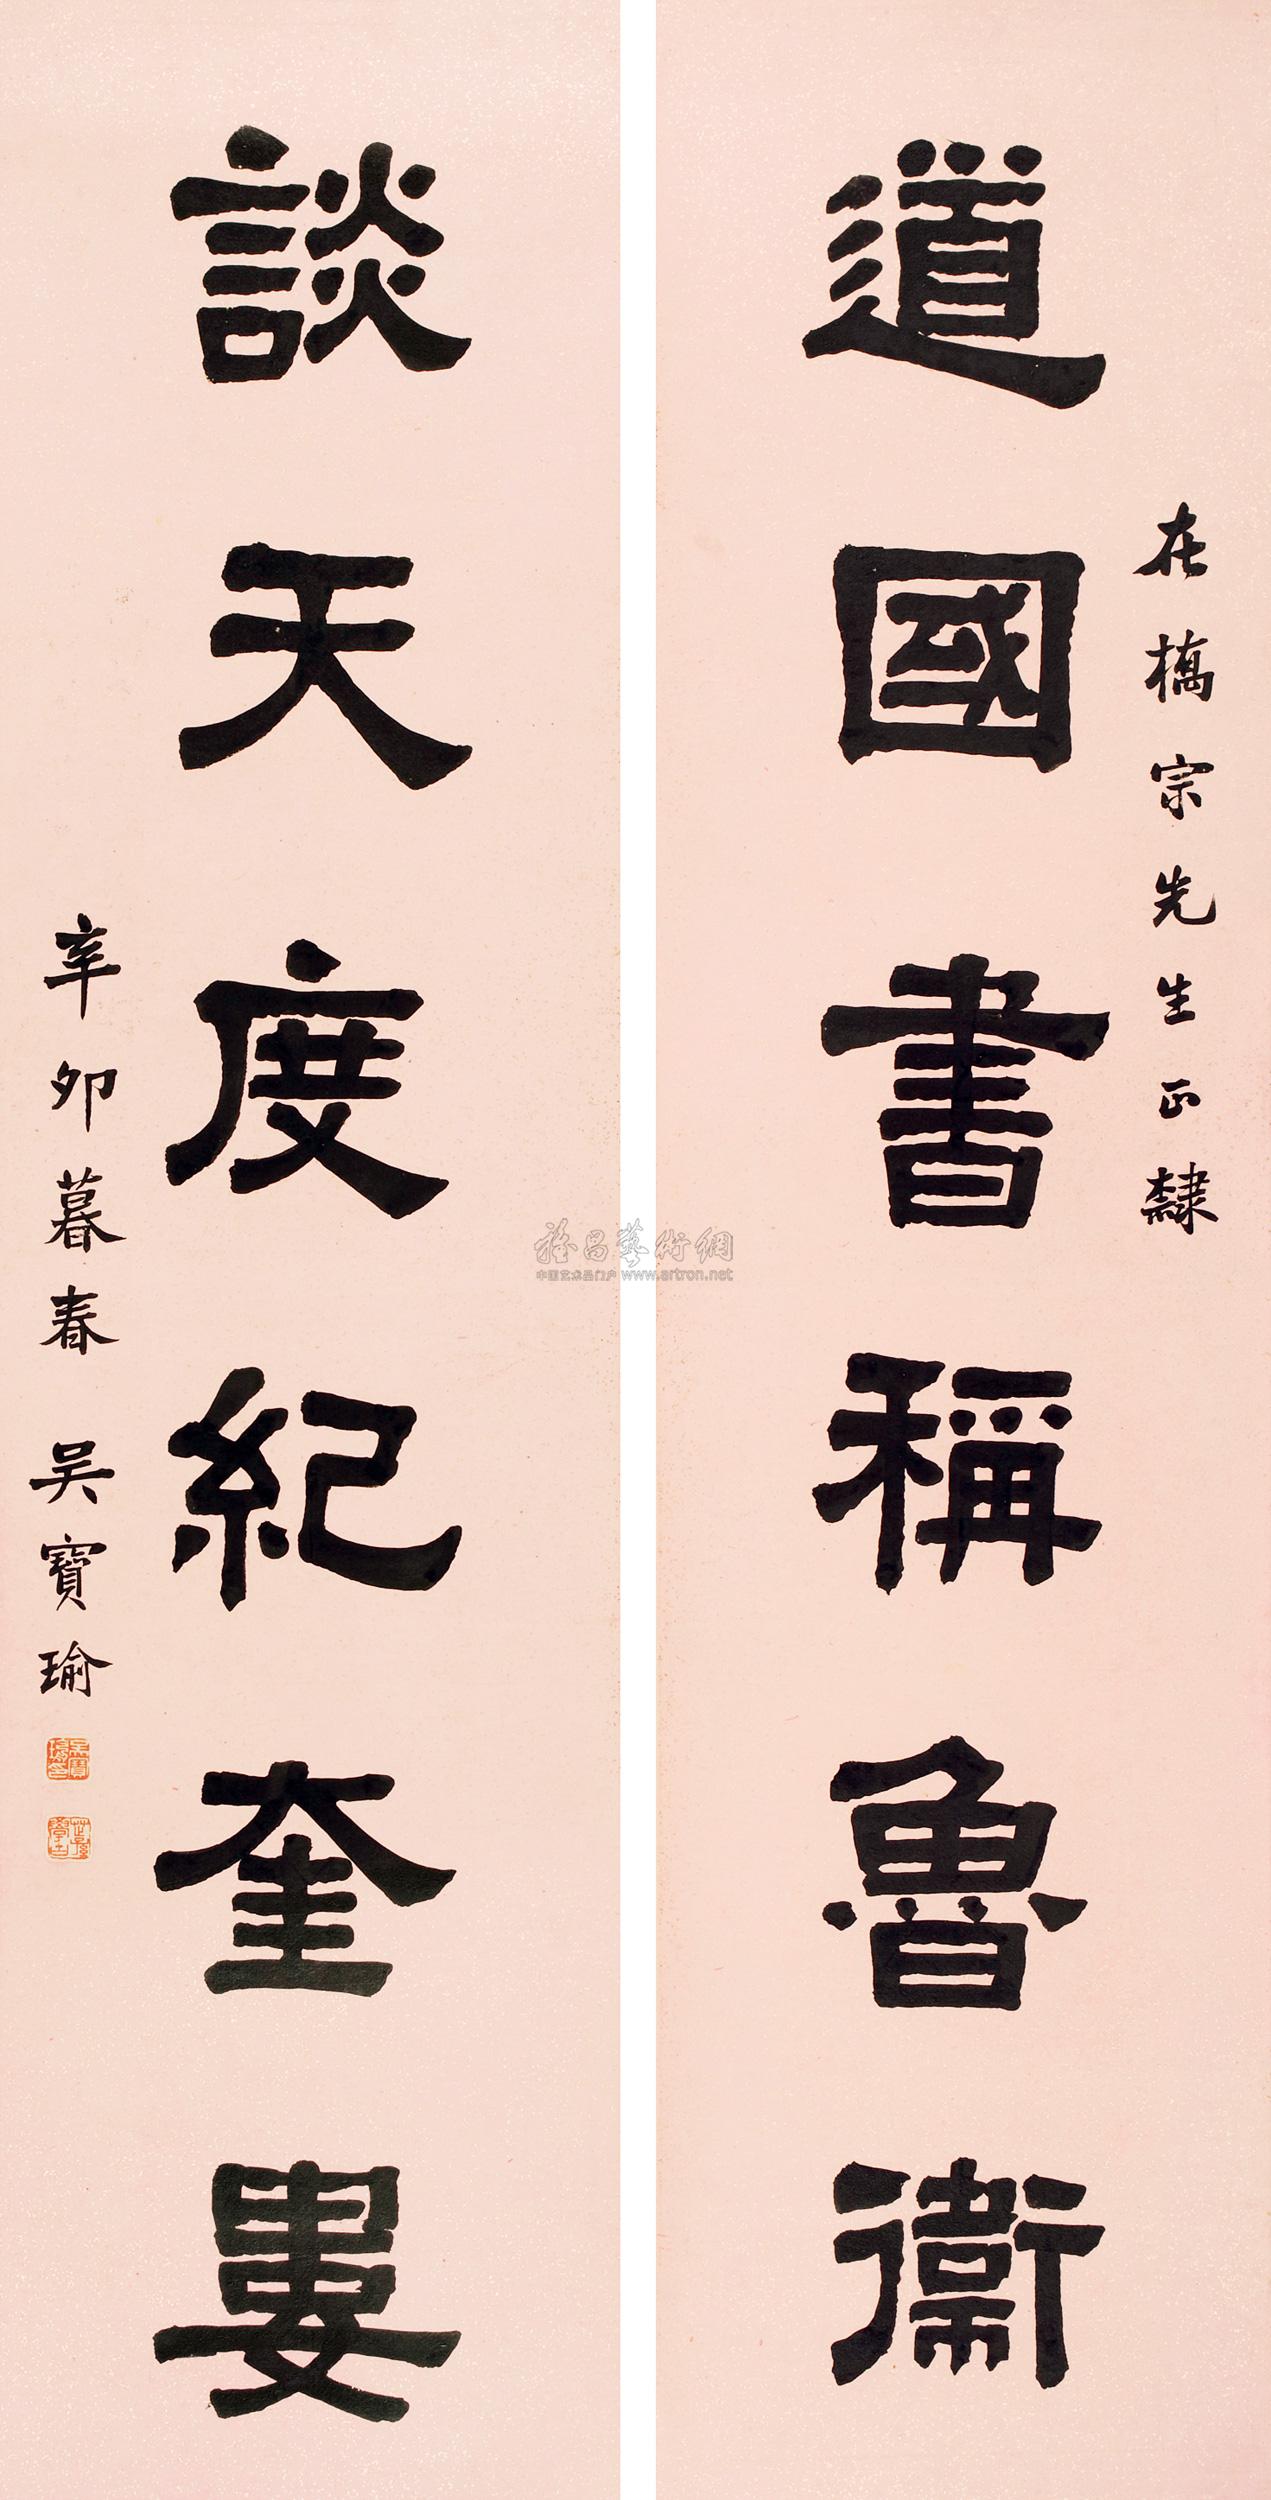 道國書稱魯衛
在橋宗先生正隸
談天度紀奎婁
辛卯暮春 吴寶瑜
中国艺术品门户 www.artron.net